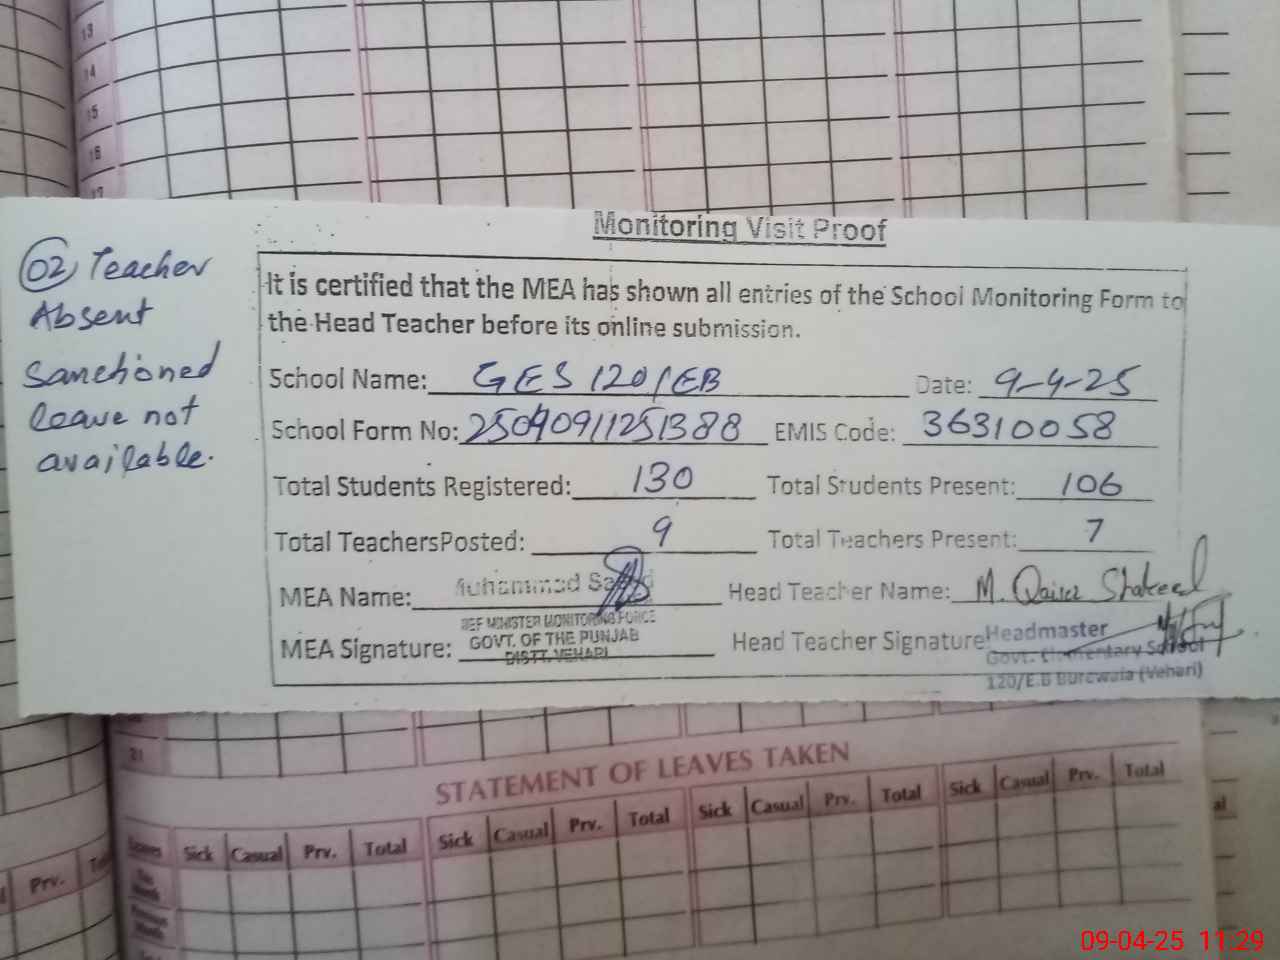 13
14
15
16
17
Monitoring Visit Proof
02 Teacher
Absent
Sanctioned
leave not
available.
It is certified that the MEA has shown all entries of the School Monitoring Form to
the Head Teacher before its online submission.
School Name: GES 120/EB Date: 9-4-25
School Form No: EMIS Code: 36310058
Total Students Registered: 130 Total Students Present: 106
Total TeachersPosted: 9 Total Teachers Present: 7
MEA Name: Muhammad Head Teacher Name: M. Qaiser Shakeel
MEA Signature: Head Teacher Signature
MINISTER MONITORING FORCE
GOVT. OF THE PUNJAB
DISTT. VEHARI
Headmaster
Govt. Elementary School
120/E.B Burewala (Vehari)
21
STATEMENT OF LEAVES TAKEN
Leaves Sick Casual Prv. Total Sick Casual Prv. Total Sick Casual Prv. Total Sick Casual Prv. Total
Prv.
09-04-25 11:29